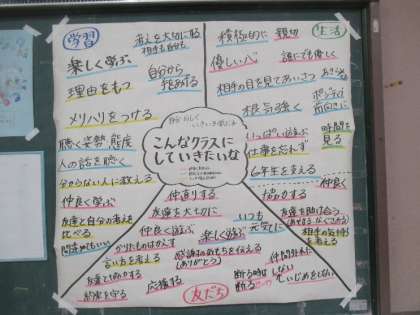 学習
考えを大切にする
相手も自分も
楽しく学ぶ
自分から
理由をもつ
メリハリをつける
聴く姿勢、態度
人の話を聴く
分からない人に教える
仲良く学ぶ
友達と自分の考え
比べる
間違えてもいい
生活
積極的に
親切
優しい心
誰にでも優しく
相手の目を見てあいさつ
根気強く
ポジティブ
前向きに
いっぱい遊ぶ
時間を
見る
仕事を忘れず
6年生を支える
こんなクラスに
していきたいな
友だち
仲直りする
友達を大切に
仲良く遊ぶ
楽しく遊ぶ
いつも
元気に
協力する
仲良し
友達を助け合う
相手の気持ち
を考える
かりたものはかえす
言い方を考える
感謝の気もちを伝える
(ありがとう)
友達と協力する
約束を守る
応援する
断る時は
断る
仲間外れに
しない